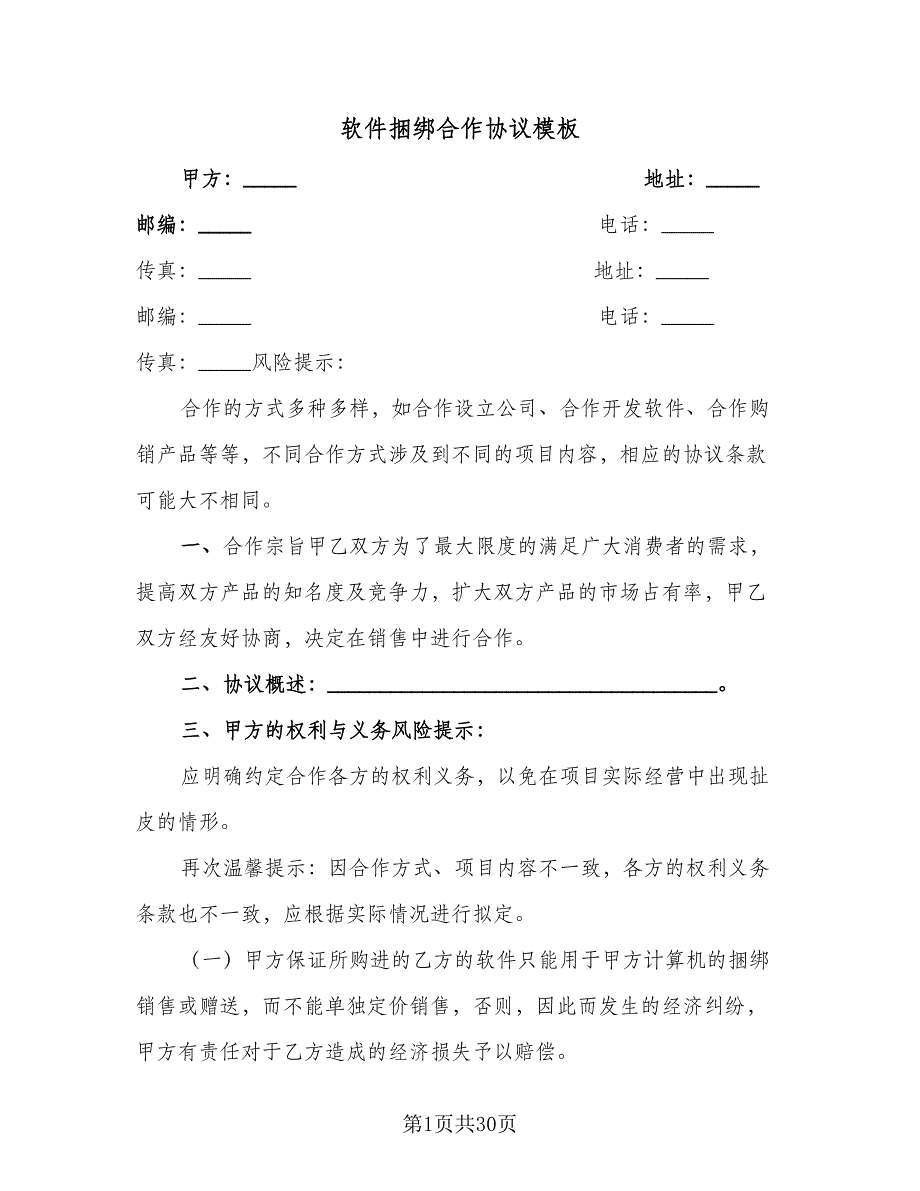 软件捆绑合作协议模板
甲方：_____ 地址：_____
邮编：_____ 电话：_____
传真：_____ 地址：_____
邮编：_____ 电话：_____
传真：_____风险提示：
合作的方式多种多样，如合作设立公司、合作开发软件、合作购
销产品等等，不同合作方式涉及到不同的项目内容，相应的协议条款
可能大不相同。
一、合作宗旨甲乙双方为了最大限度的满足广大消费者的需求，
提高双方产品的知名度及竞争力，扩大双方产品的市场占有率，甲乙
双方经友好协商，决定在销售中进行合作。
二、协议概述：_____________________________________。
三、甲方的权利与义务风险提示：
应明确约定合作各方的权利义务，以免在项目实际经营中出现扯
皮的情形。
再次温馨提示：因合作方式、项目内容不一致，各方的权利义务
条款也不一致，应根据实际情况进行拟定。
（一）甲方保证所购进的乙方的软件只能用于甲方计算机的捆绑
销售或赠送，而不能单独定价销售，否则，因此而发生的经济纠纷，
甲方有责任对于乙方造成的经济损失予以赔偿。
第1页共30页